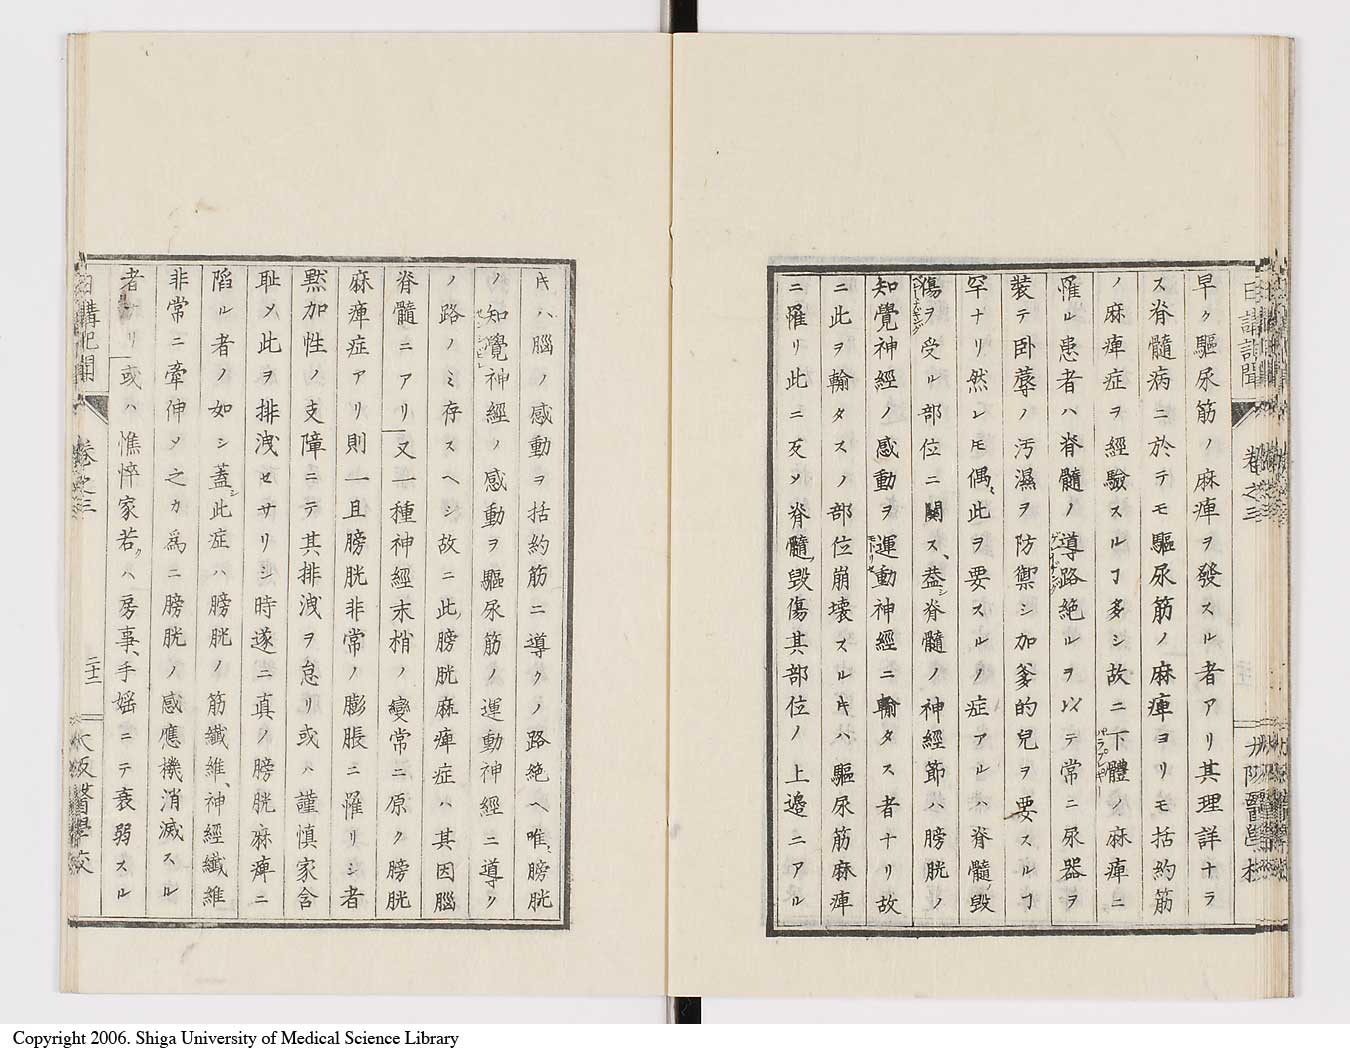 日講記聞 卷之三
早ク驅尿筋ノ麻痺ヲ發スル者アリ其理詳ナラ
ス脊髓病ニ於テモ驅尿筋ノ麻痺ヨリモ括約筋
ノ麻痺症ヲ經驗スルヿ多シ故ニ下體ノ麻痺ニ
罹ル患者ハ脊髓ノ導路絶ルヲ以テ常ニ尿器ヲ
裝テ卧蓐ノ汚濕ヲ防禦シ加爹的兒ヲ要スルヿ
罕ナリ然レ𪜈偶此ヲ要スルノ症アルハ脊髓ノ毀
傷ヲ受ル部位ニ關ス、葢シ脊髓ノ神經節ハ膀胱ノ
知覺神經ノ感動ヲ運動神經ニ輸タス者ナリ故
ニ此ヲ輸タスノ部位崩壊スルキハ驅尿筋麻痺
ニ罹リ此ニ反ソ脊髓ノ毀傷其部位ノ上邉ニアル
キハ腦ノ感動ヲ括約筋ニ導クノ路絶ヘ唯、膀胱
ノ知覺神經ノ感動ヲ驅尿筋ノ運動神經ニ導ク
ノ路ノミ存スヘシ故ニ此膀胱麻痺症ハ其因腦
脊髓ニアリ又一種神經末梢ノ變常ニ原ク膀胱
麻痺症アリ則一且膀胱非常ノ膨脹ニ罹リシ者
黙加性ノ支障ニテ其排洩ヲ怠リ或ハ謹慎家含
耻メ此ヲ排洩セサリシ時遂ニ真ノ膀胱麻痺ニ
䧟ル者ノ如シ蓋シ此症ハ膀胱ノ筋纖維、神經纖維
非常ニ牽伸ソ之カ爲ニ膀胱ノ感應機消滅スル
者ナリ或ハ憔悴家若クハ房事、手婬ニテ衰弱スル
日講記聞 卷之三 二十二 大阪醫學校